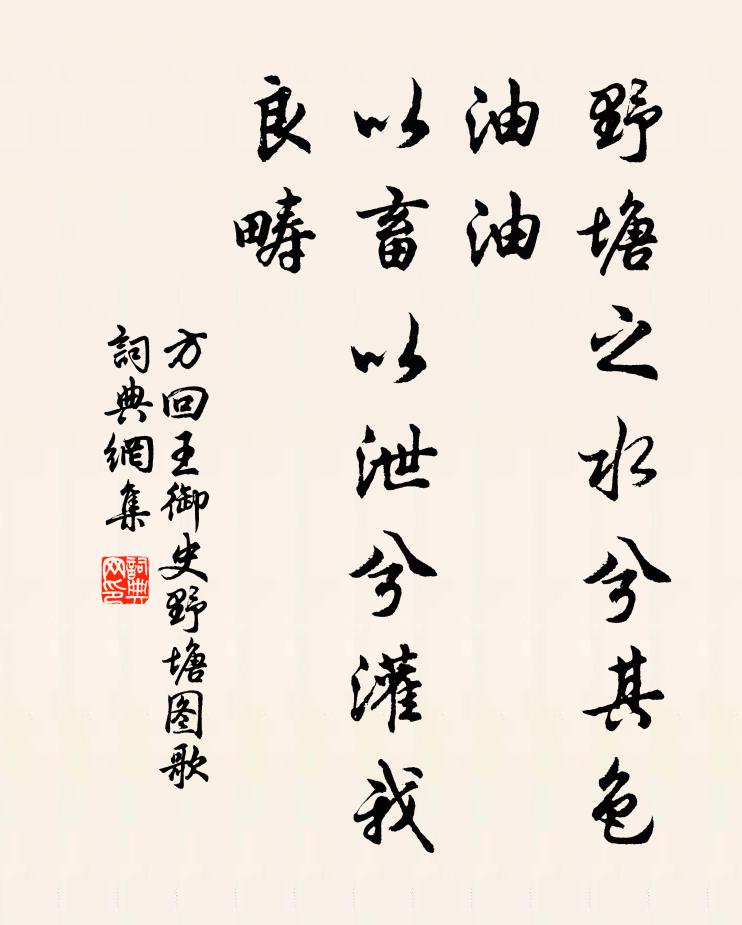 野塘之水兮其色
油油
以畜以泄兮灌我
良疇
方回王御史野塘图歌
詞典網集
詞典网印